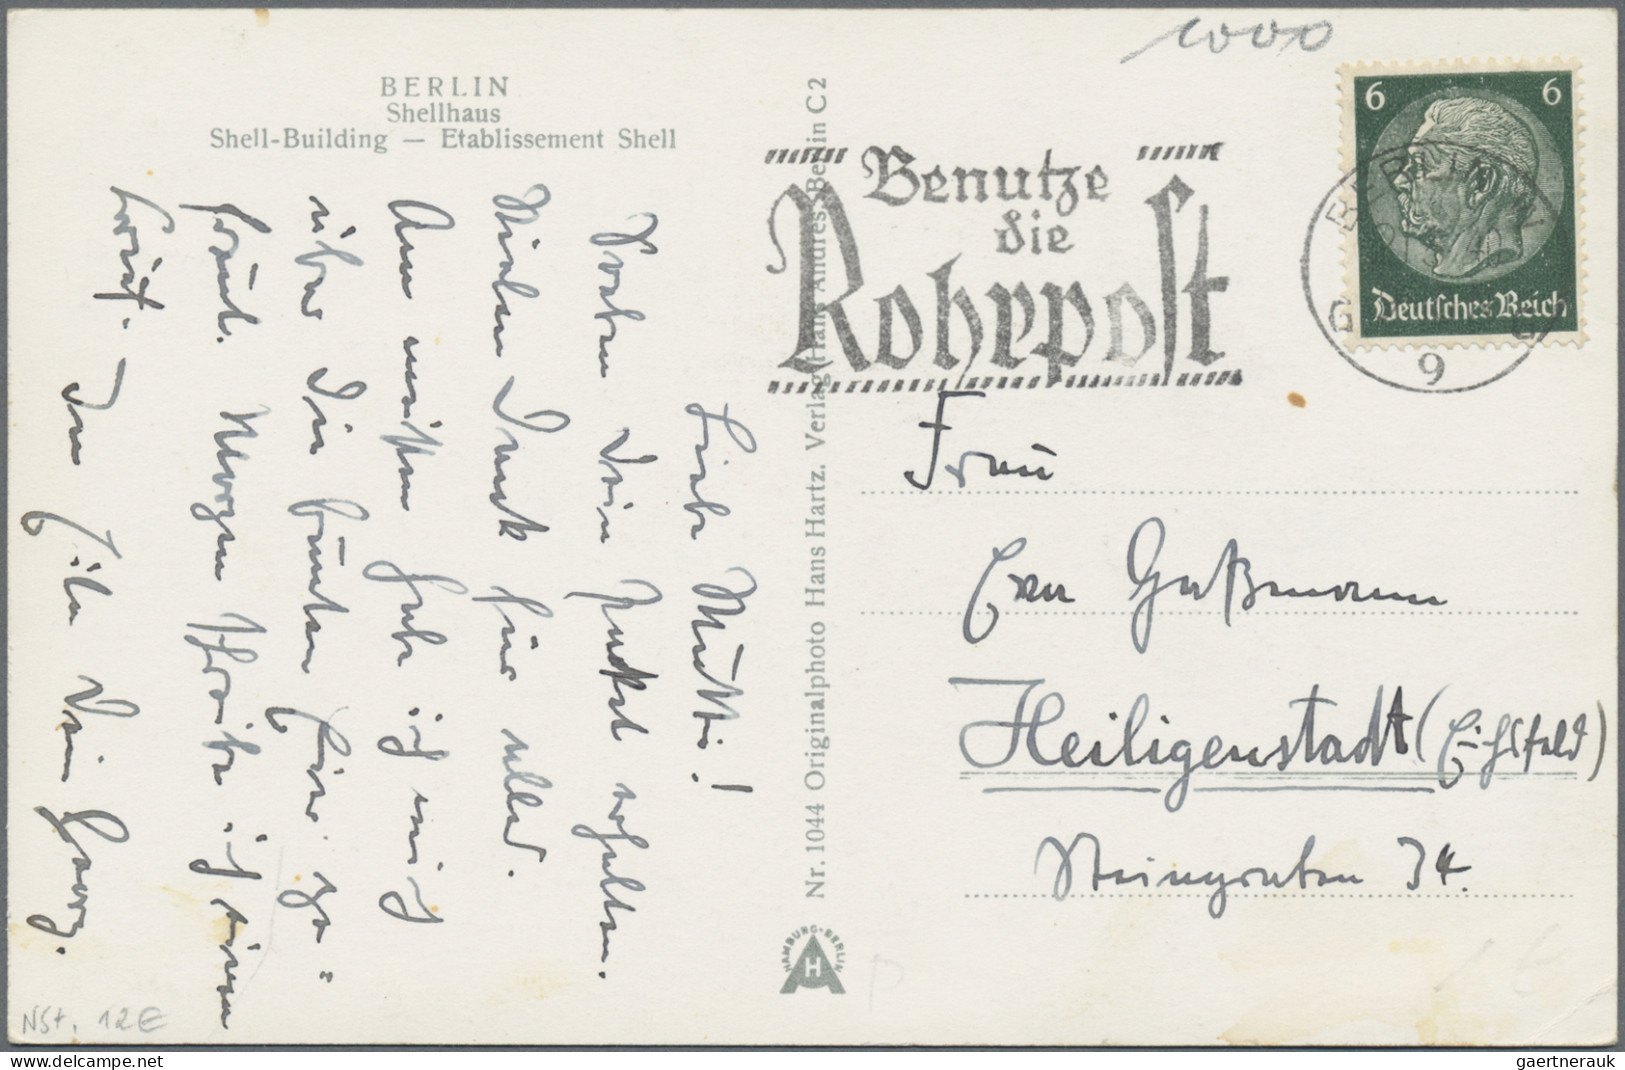 1000
BERLIN
Shellhaus
Shell-Building — Etablissement Shell
Liebe Mutti!
Soeben Dein Paket erhalten.
Vielen Dank für alles.
Am meisten habe ich mich
über die bunten Eier ge=
freut. Morgen schreibe ich einen
Brief. In Eile Dein Georg.
NSt. 12€
Nr. 1044 Originalphoto Hans Hartz. Verlag Hans Andres, Berlin C 2
HAMBURG-BERLIN
H
Benutze
die
Rohrpost
6 6
Deutsches Reich
BERLIN W
9
Frau
Gaßmann
Heiligenstadt (Eichsfeld)
Steingraben 34.
gaertnerauk